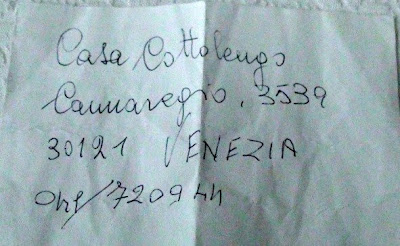 Casa Cottolengo
Cannaregio, 3539
30121 VENEZIA
041/720944